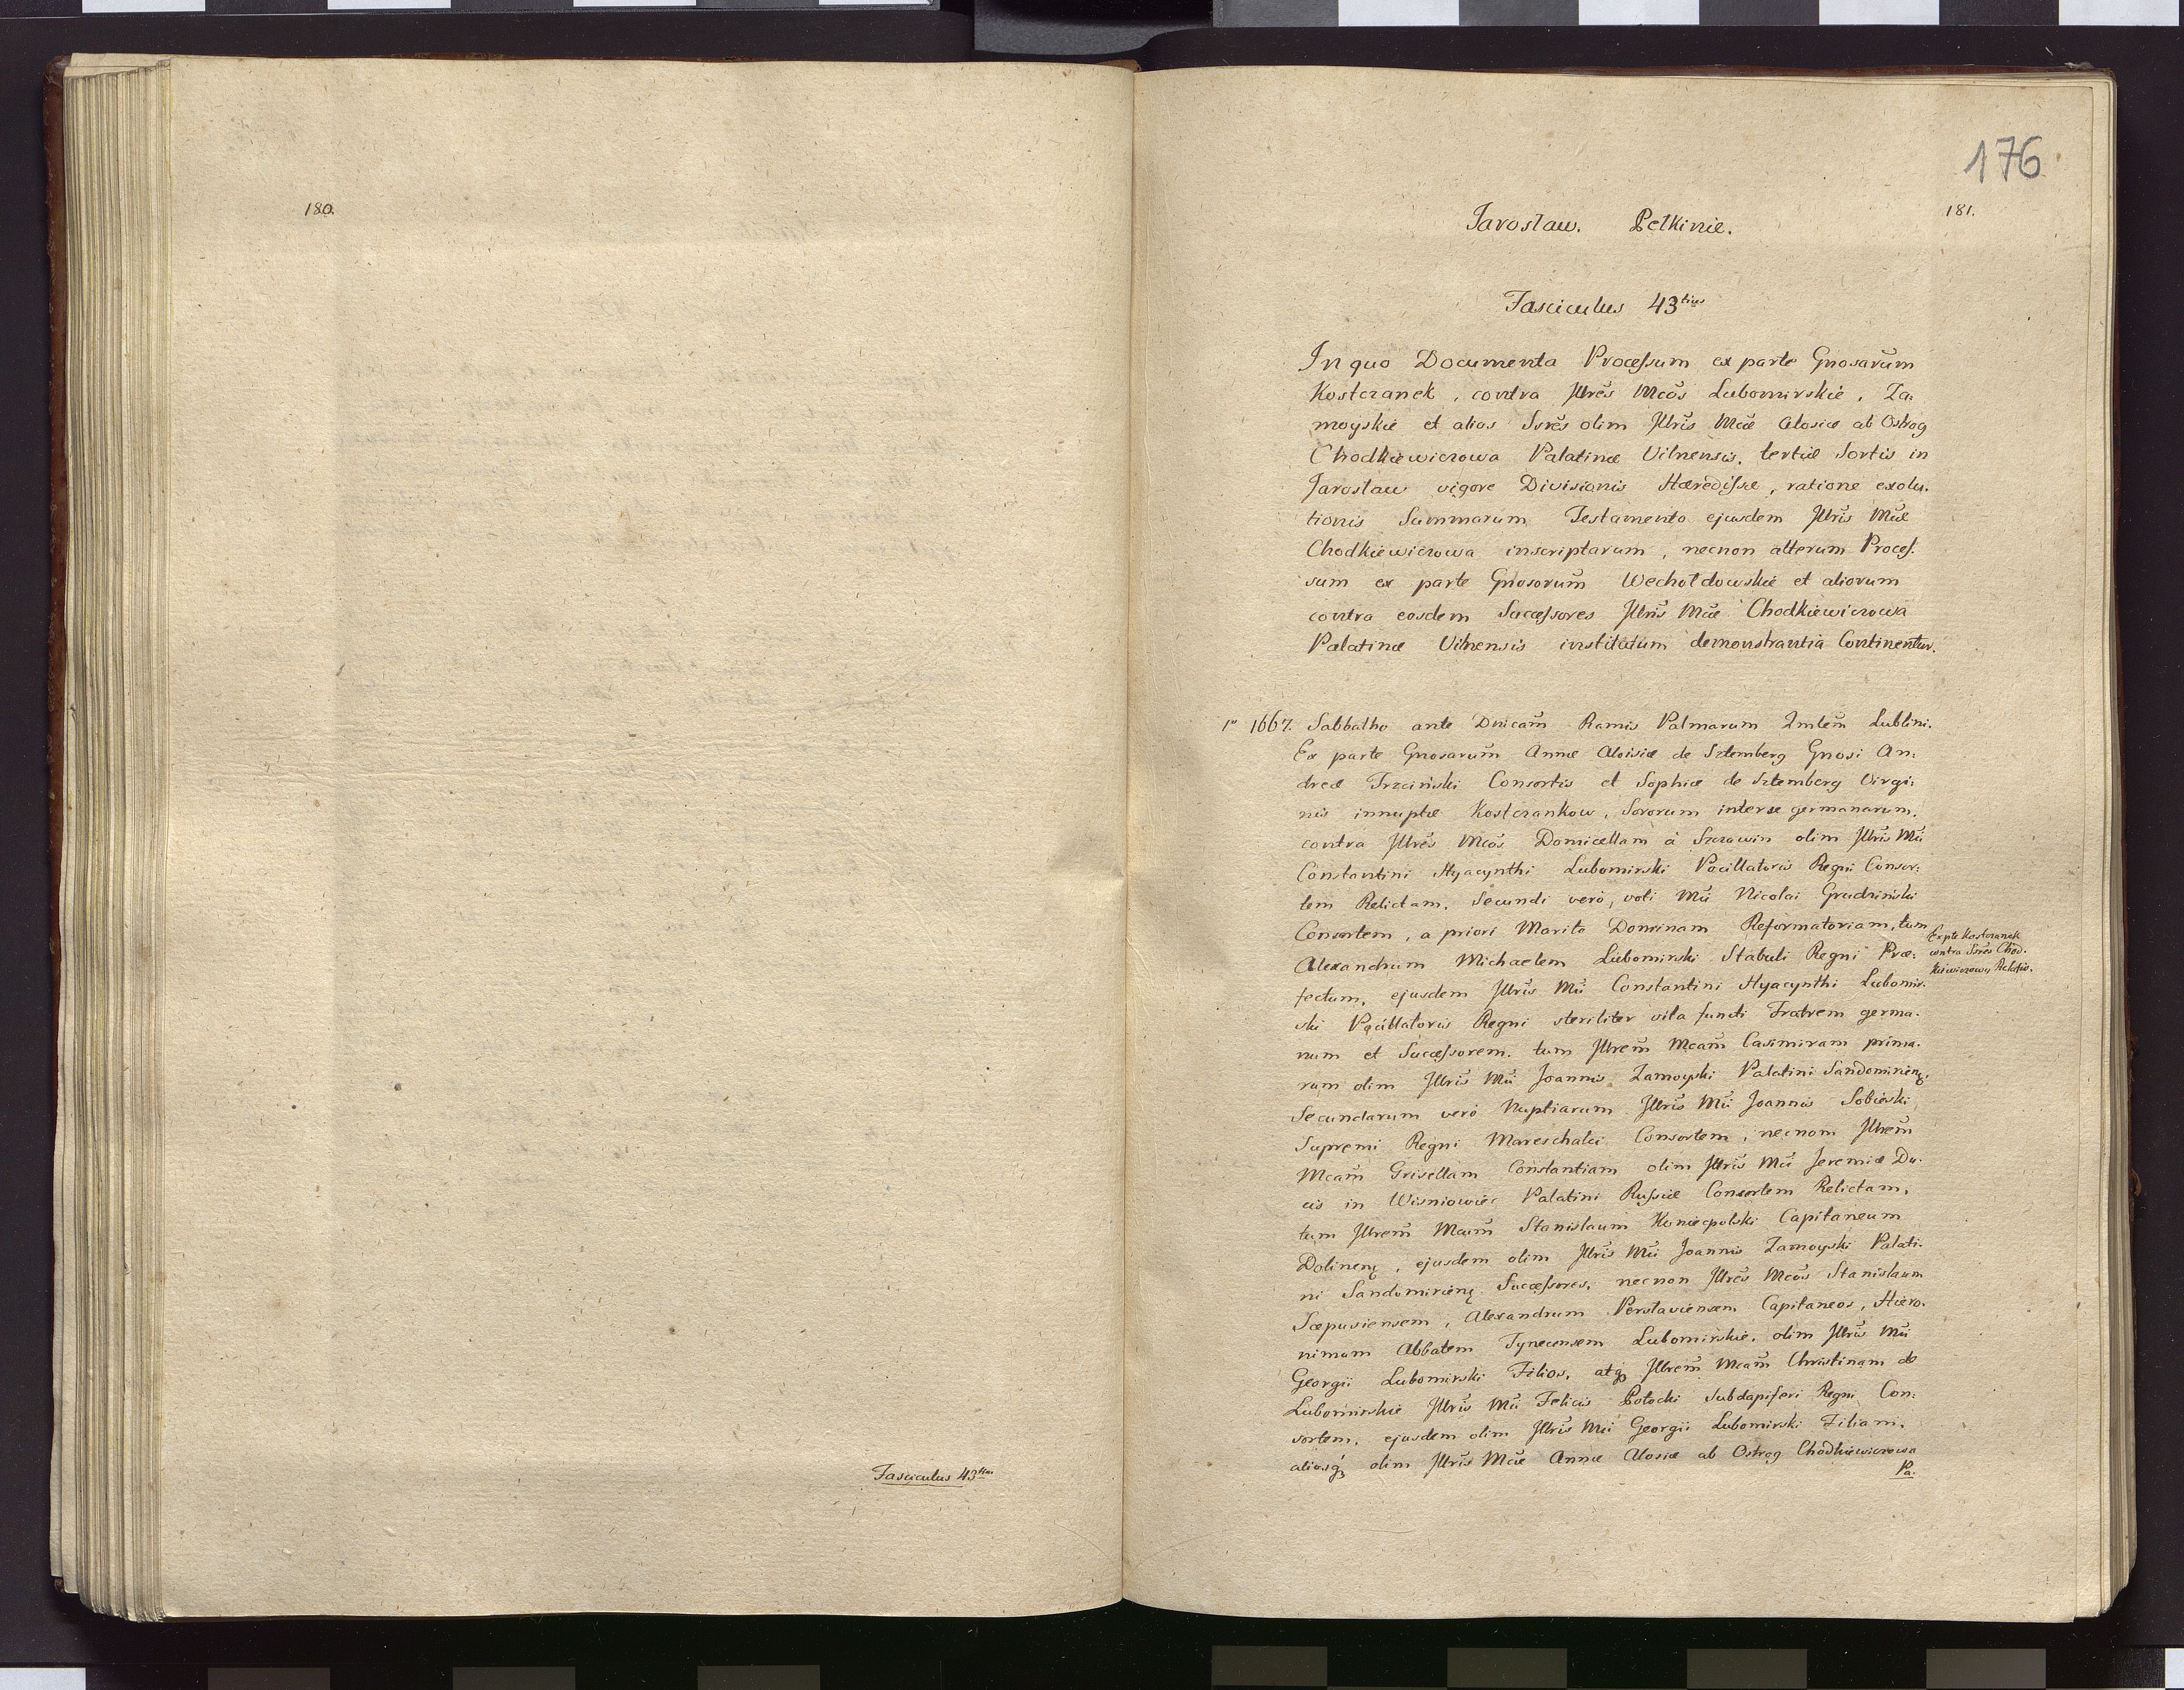 180.
Fasciculus 43tius
176
181.
Jarosław. Pełkinie.
Fasciculus 43tius
In quo Documenta Processum ex parte Gnosarum̃
Kostczanek, contra Jllres̃ Mcos̃ Lubomirskie, Za:
moyskie et alios Ssres̃ olim Jllris̃ Mcæ Alosiæ ab Ostrog
Chodkiewiczowa Palatinæ Vilnensis, tertiæ Sortis in
Jarosław vigore Divisionis Hæredissæ, ratione exolu.
tionis Summarum Testamento ejusdem Jllris̃ Mcæ
Chodkiewiczowa inscriptarum, necnon alterum Proces.
sum ex parte Gnosorum̃ Wechołdowskie et aliorum
contra eosdem Successores Jllris̃ Mcæ Chodkiewiczowa
Palatinæ Vilnensis institutum demonstrantia Continentur.
1o 1667. Sabbatho ante Dnicam̃ Ramis Palmarum Lublini.
Ex parte Gnosarum̃ Annæ Aloisiæ de Sztemberg Gnosi An:
dreæ Trzciński Consortis et Sophiæ de Sztemberg Virgi:
nis innuptæ Kostczankow, Sororum interse germanarum.
contra Jllres̃ Mcos̃ Domicellam à Szczawin olim Jllris̃ Mci
Constantini Hyacynthi Lubomirski Pocillatoris Regni Consor:
tem Relictam. Secundi verò, voti Mci Nicolai Grudziński
Consortem, a priori Marito Dominam Reformatoriam, tum
Alexandrum Michaelem Lubomirski Stabuli Regni Præ:
fectum, ejusdem Jllris̃ Mci Constantini Hyacynthi Lubomir.
ski Pocillatoris Regni steriliter vita functi Fratrem germa.
num et Successorem. tum Jllrem̃ Mcam̃ Casimiram prima.
rum olim Jllris̃ Mci Joannis Zamoyski Palatini Sandomirieng.
Secundarum verò Nuptiarum Jllris̃ Mci Joannis Sobieski
Supremi Regni Mareschalci Consortem, necnom Jllrem̃
Mcam̃ Grisellam Constantiam olim Jllris̃ Mci Jeremiæ Du.
cis in Wisniowiec Palatini Russiæ Consortem Relictam,
tum Jllrem̃ Mcum̃ Stanislaum Koniecpolski Capitaneum
Dolineng, ejusdem olim Jllris̃ Mci Joannis Zamoyski Palati.
ni Sandomirieng Successores, necnon Jllres̃ Mcos̃ Stanislaum
Scepusiensem, Alexandrum Perstaviensem Capitaneos, Hiero.
nimum Abbatem Tynecensem Lubomirskie. olim Jllris̃ Mci
Georgii Lubomirski Filios, atq Jllrem̃ Mcam̃ Christinam de
Lubomirskie Jllris̃ Mci Felicis Potocki Subdapiferi Regni Con:
sortem, ejusdem olim Jllris̃ Mci Georgii Lubomirski Filiam,
aliosq olim Jllris̃ Mcæ Annæ Alosiæ ab Ostrog Chodkiewiczowa
Pa.
Ex pte Kostczanek
contra Ssres̃ Chod.
kiewiczowej Relatio.